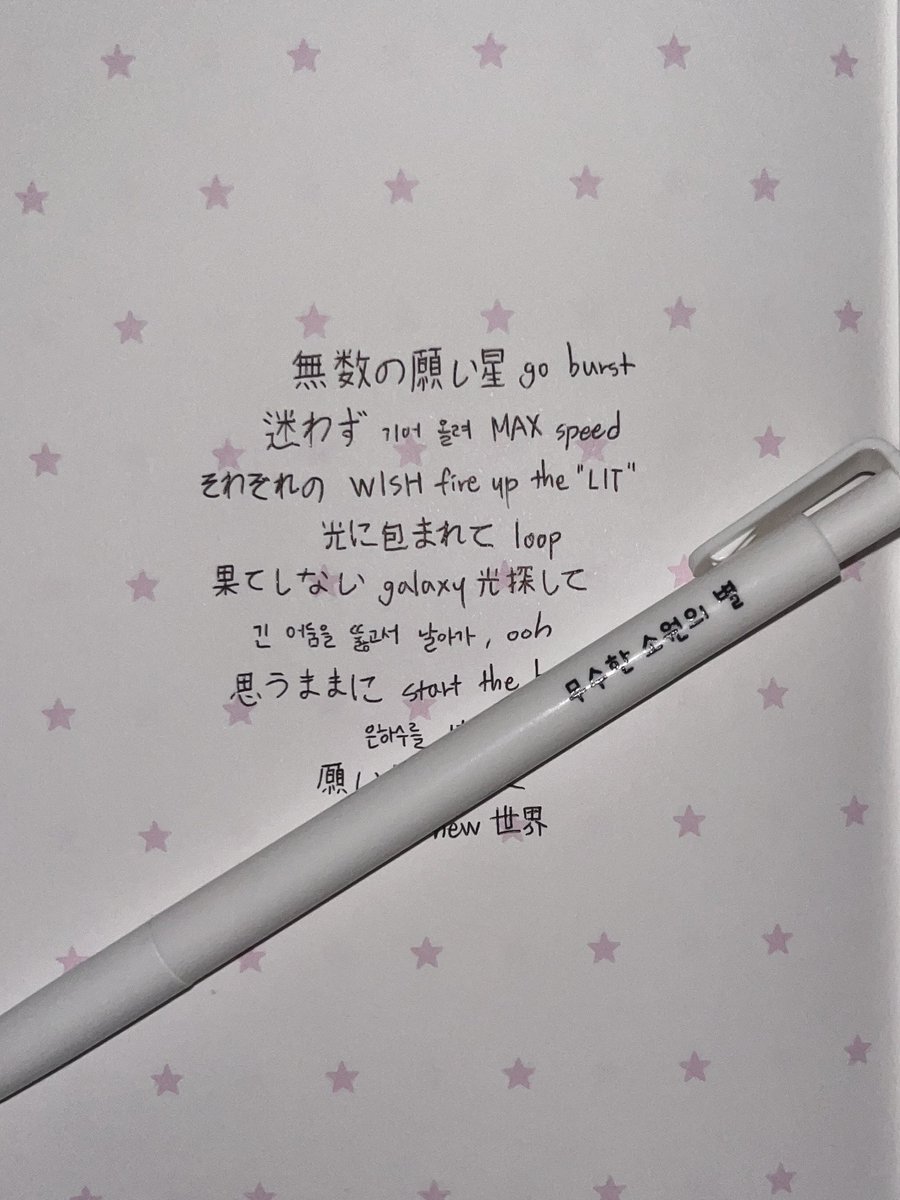 無数の願い星 go burst
迷わず 기어 올려 MAX speed
それぞれの WISH fire up the "LIT"
光に包まれて loop
果てしない galaxy 光探して
긴 어둠을 뚫고서 날아가, ooh
思うままに start the
은하수를
願い
new 世界
무수한 소원의 별